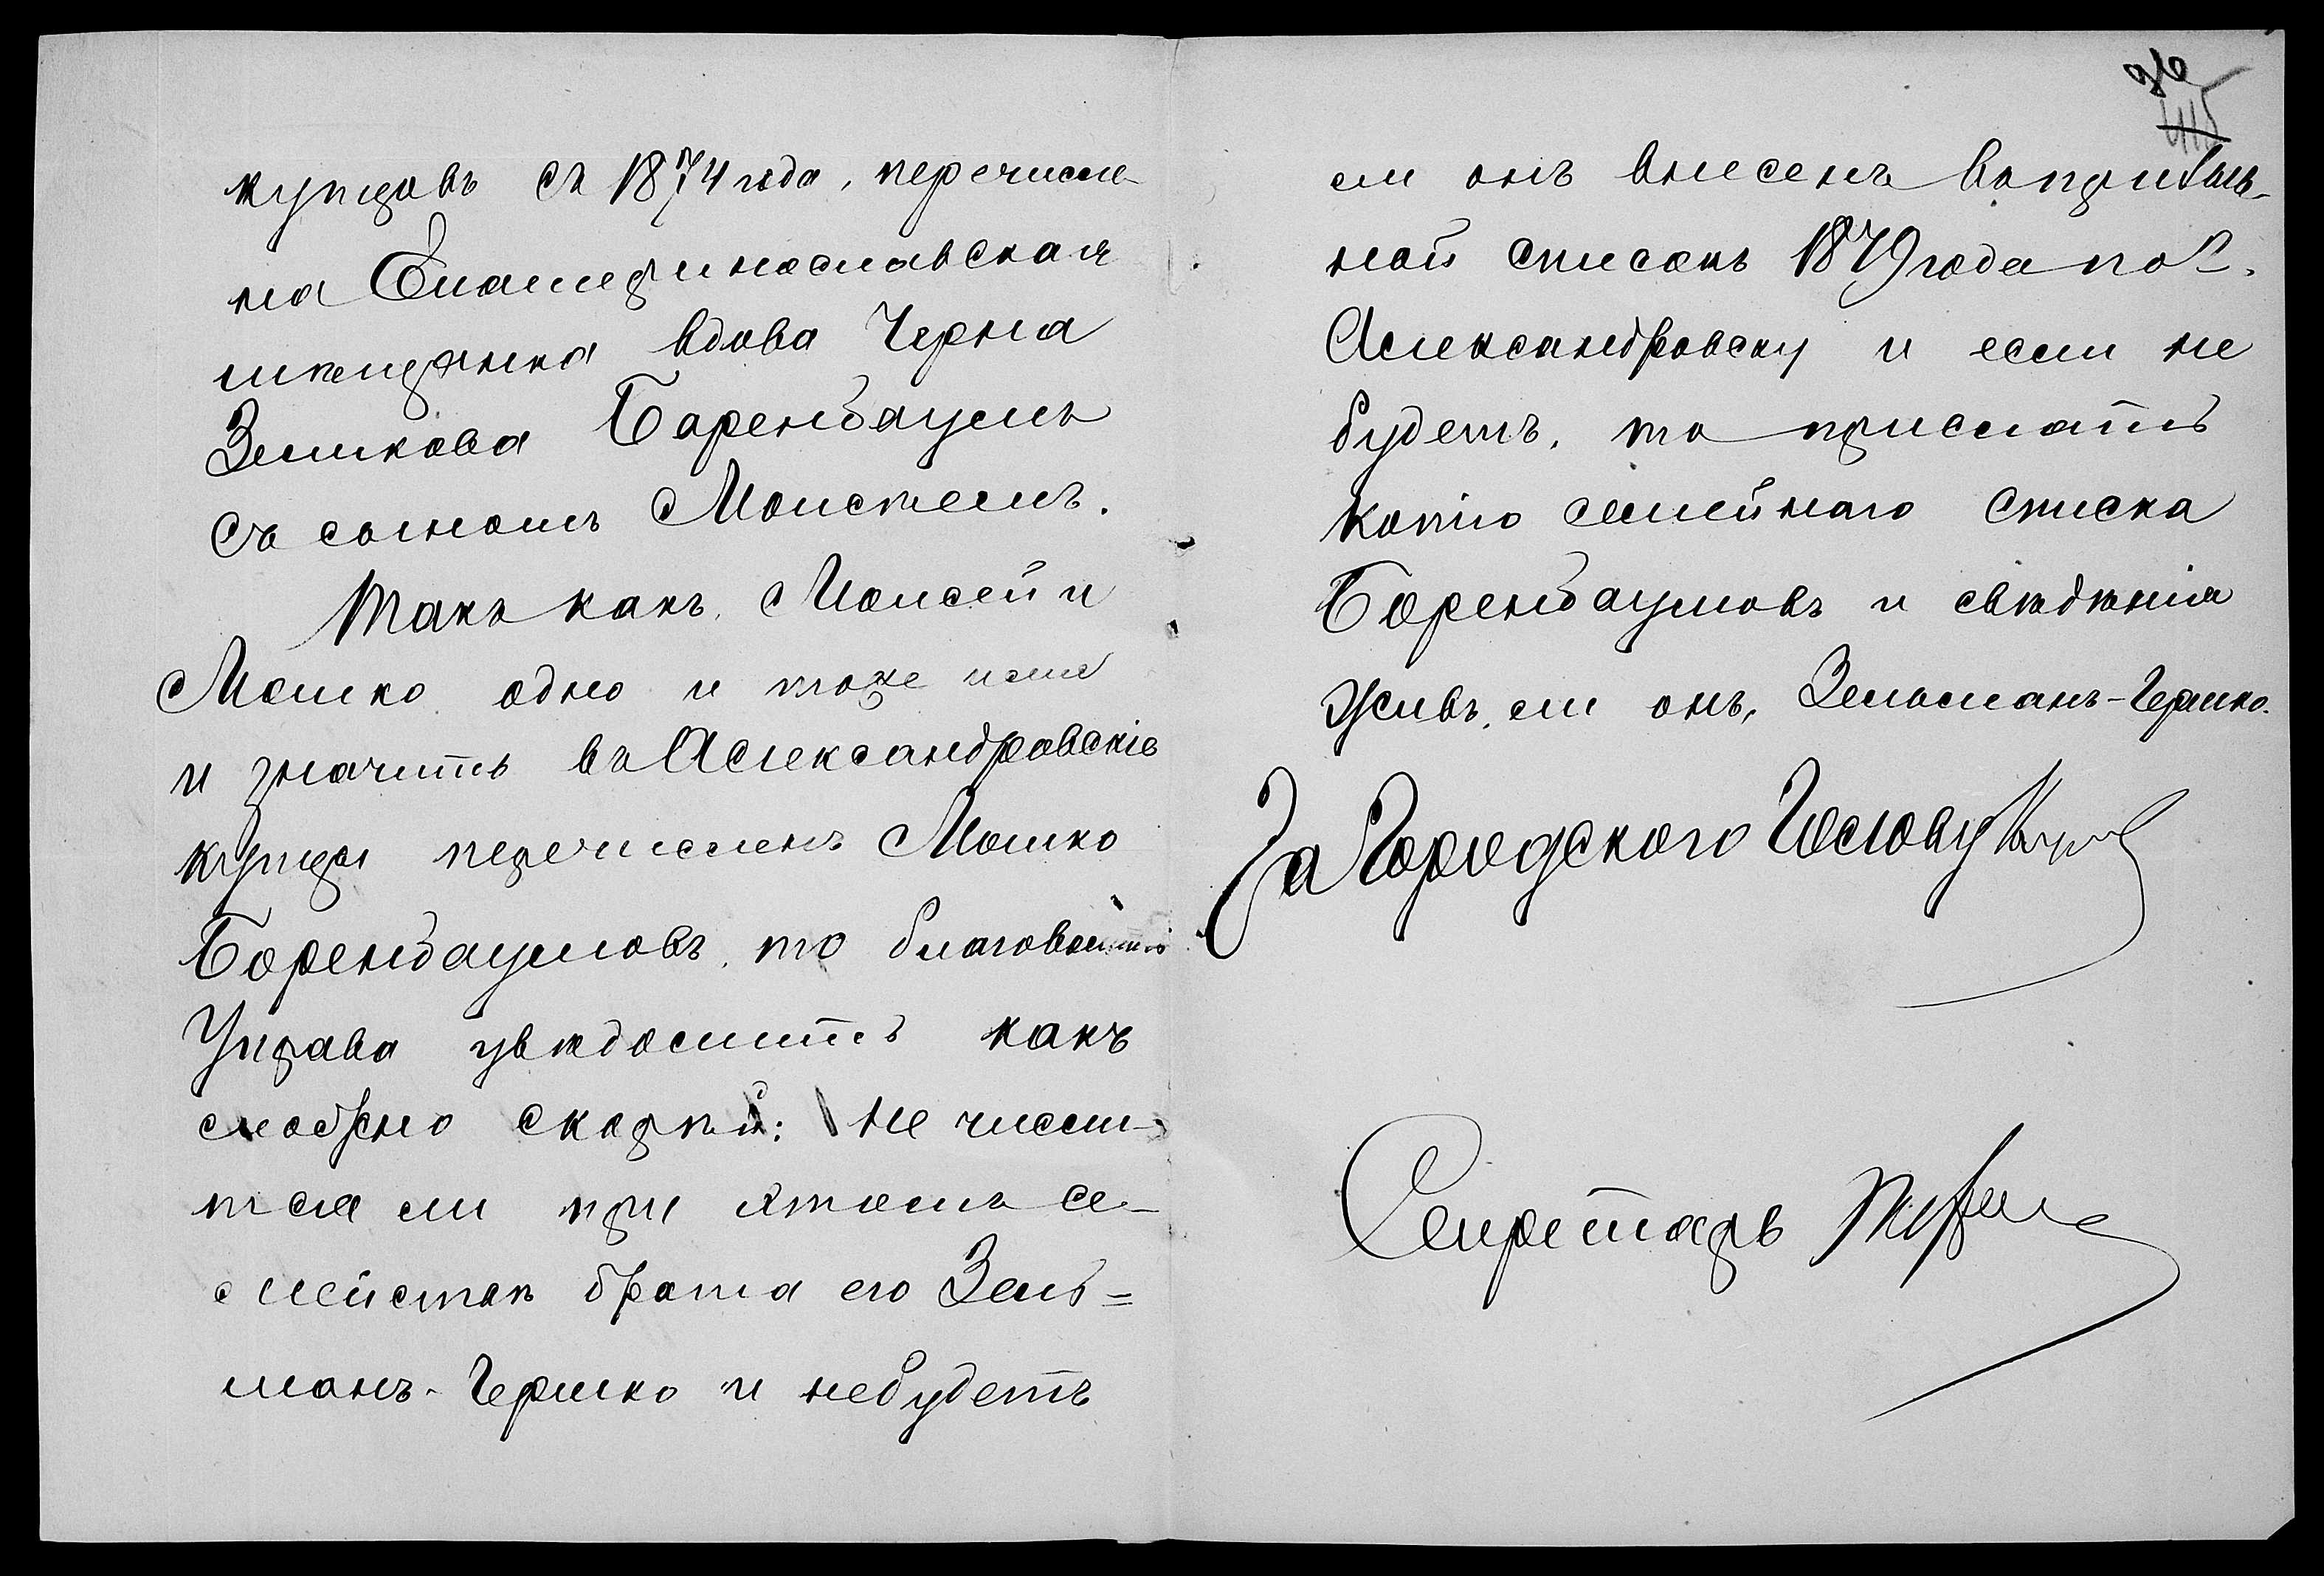 купцовъ съ 1874 года, перечисле-
на Екатеринославская
мѣщанка вдова Черна
Зеликова Баренбаумъ
съ сыномъ Моисеемъ.
Такъ какъ Моисей и
Мошко одно и тоже имя
и значитъ въ Александровскіе
купцы перечисленъ Мошко
Боренбаумовъ, то благоволитъ
Управа увѣдомить какъ
можно скорѣй: не числи-
тся ли при этомъ се-
мействѣ брата его Зель=
манъ-Гершко и небудетъ
415
ли онъ внесенъ въ призыв-
ной списокъ 1879 года по г.
Александровску и если не
будетъ, то прислать
копію семейнаго списка
Боренбаумовъ и свѣдѣнія
живъ ли онъ, Зельманъ-Гершко.
За Городского Голову
Секретарь